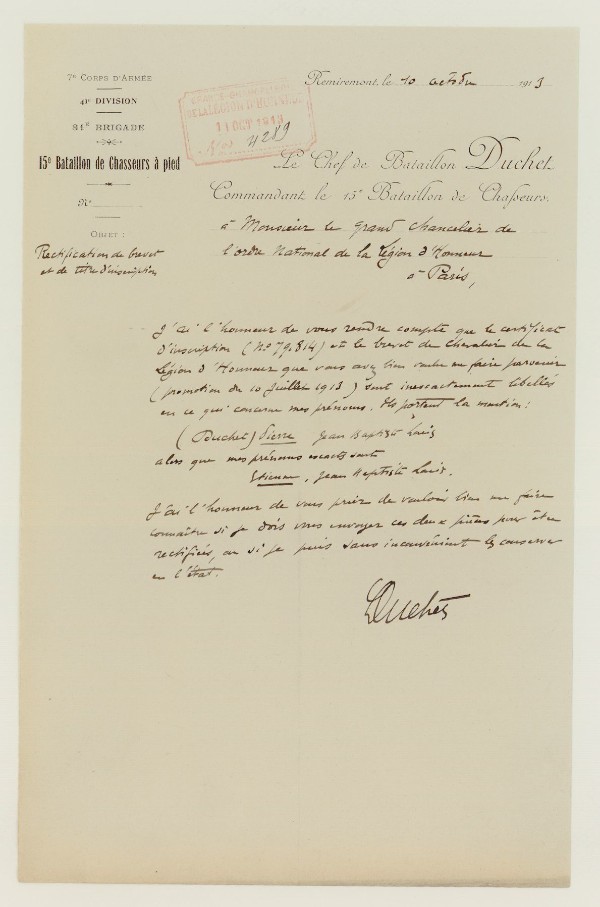 7e CORPS D'ARMÉE
41e DIVISION
81e BRIGADE
15e Bataillon de Chasseurs à pied
N°
OBJET :
Rectification de brevet
et de titre d'inscription
Remiremont, le 10 octobre 1913
DE LA LÉGION D'HONNEUR
11 OCT 1913
4289
Le Chef de Bataillon Duchet
Commandant le 15e Bataillon de Chasseurs,
à Monsieur le Grand Chancelier de
l'ordre National de la Légion d'Honneur
à Paris,
J'ai l'honneur de vous rendre compte que le certificat
d'inscription (N° 79.814) et le brevet de Chevalier de la
Légion d'Honneur que vous avez bien voulu me faire parvenir
(promotion du 10 Juillet 1913) sont inexactement libellés
en ce qui concerne mes prénoms. Ils portent la mention :
(Duchet) Pierre Jean Baptiste Louis
alors que mes prénoms exacts sont
Etienne, Jean Baptiste Louis.
J'ai l'honneur de vous prier de vouloir bien me faire
connaître si je dois vous envoyer ces deux pièces pour être
rectifiées, ou si je puis sans inconvénient les conserver
en l'état.
Duchet